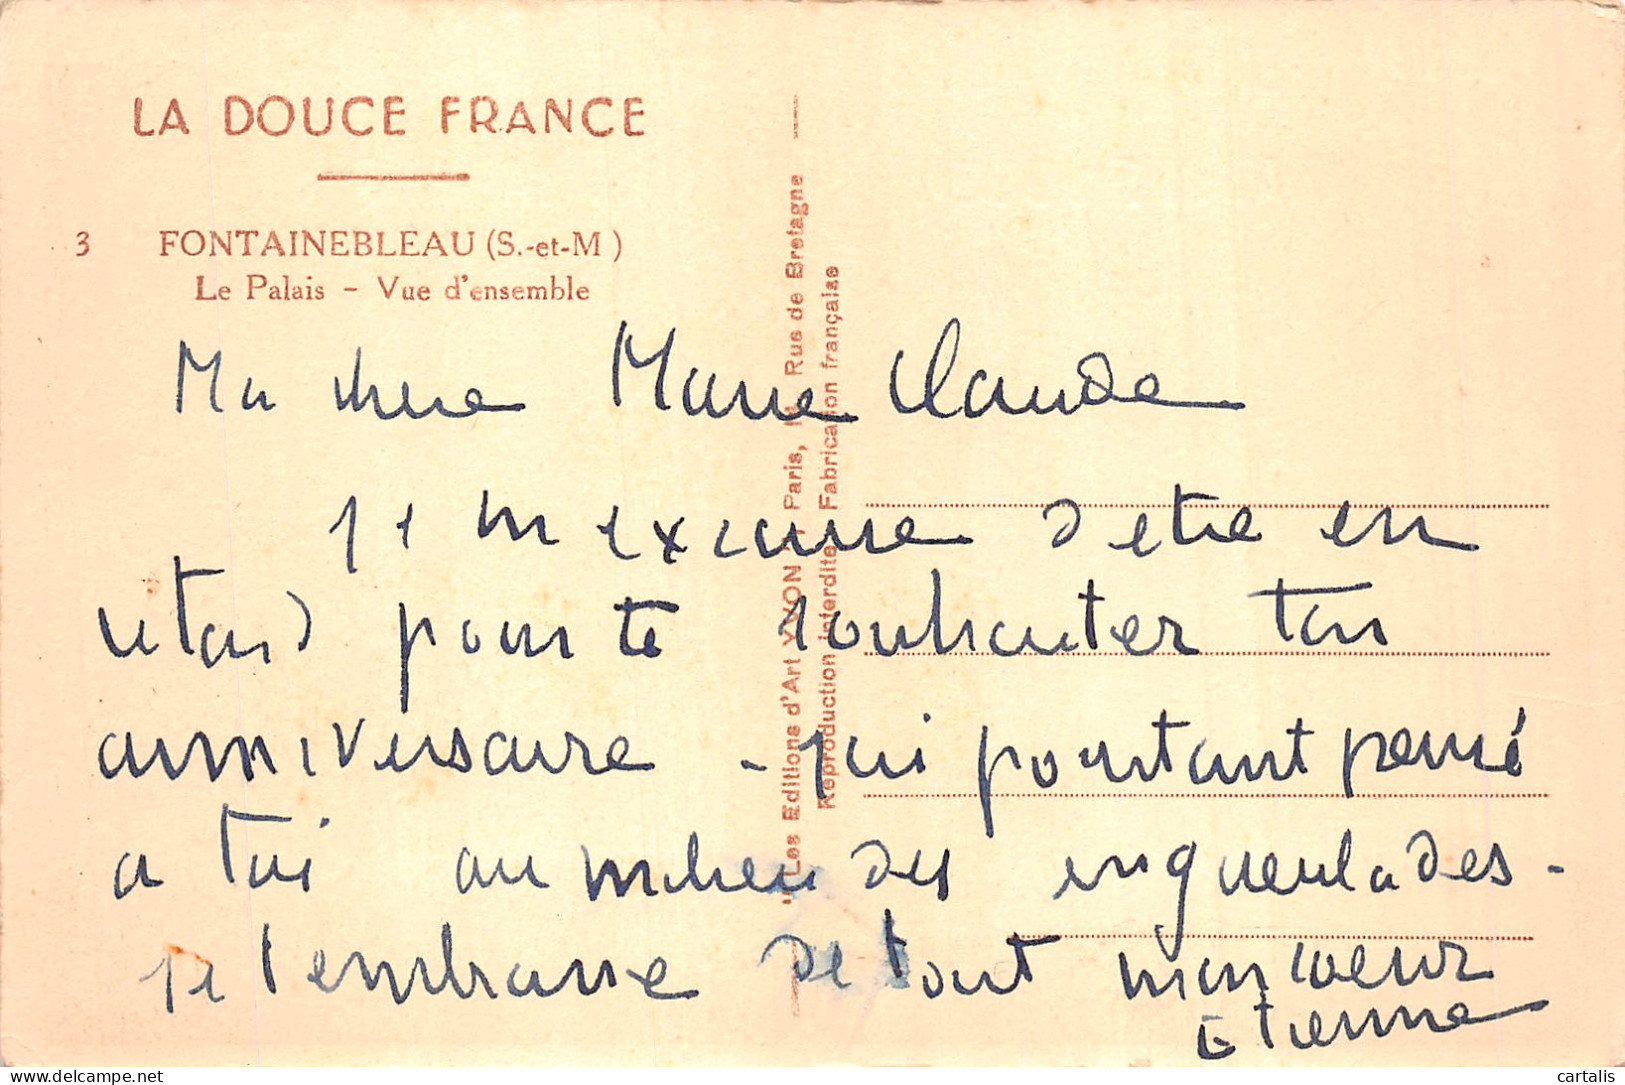 LA DOUCE FRANCE
3 FONTAINEBLEAU (S.-et-M)
Le Palais - Vue d'ensemble
Les Editions d'Art YVON, Paris, Rue de Bretagne
Reproduction interdite Fabrication française
Ma chere Marie Claude
je m excuse d etre en
retard pour te souhaiter ton
anniversaire - j'ai pourtant pensé
a toi au milieu des engueulades -
je t embrasse de tout mon coeur
Etienne
www.delcampe.net
cartalis